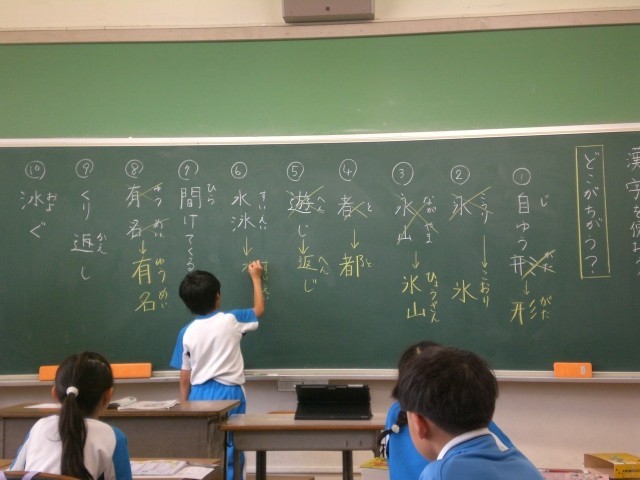 漢字
どこがちがう?
① 自ゆう形 じ がた → 形 がた
② 氷 こおり → 氷 こおり
③ 氷山 ながやま → 氷山 ひょうざん
④ 者 と → 都 と
⑤ 遊じ へん → 返じ へん
⑥ 水泳 すいえい →
⑦ 間けてくる ひら
⑧ 有名 ゆうめい → 有名 ゆうめい
⑨ くり返し かえ
⑩ 泳ぐ およ